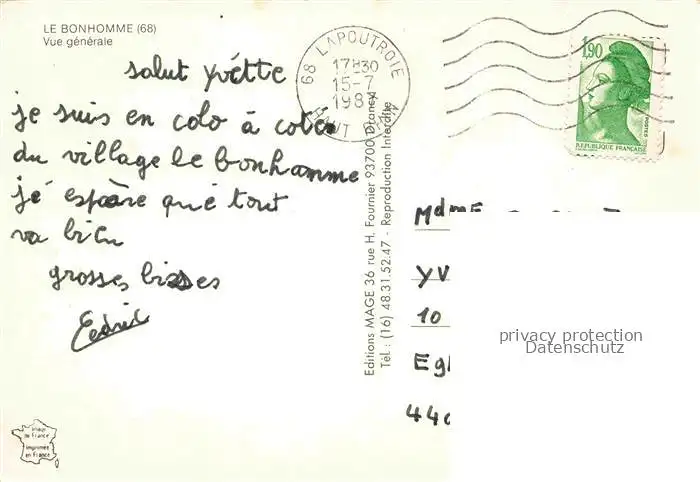 LE BONHOMME (68)
Vue générale
salut yvétte
je suis en colo à coter
du village le bonhamme
jé espère qué tout
va bien
grosses bisses
Cédric
Image de France
imprimée en France
Editions MAGE 36 rue H. Fournier 93700 Drancy
Tél.: (16) 48.31.52.47 - Reproduction Interdite
68 LAPOUTROIE
17H30
15-7
HAUT RHIN
1,90
POSTES
REPUBLIQUE FRANÇAISE
MdmE
YV
10
Egl
privacy protection
Datenschutz